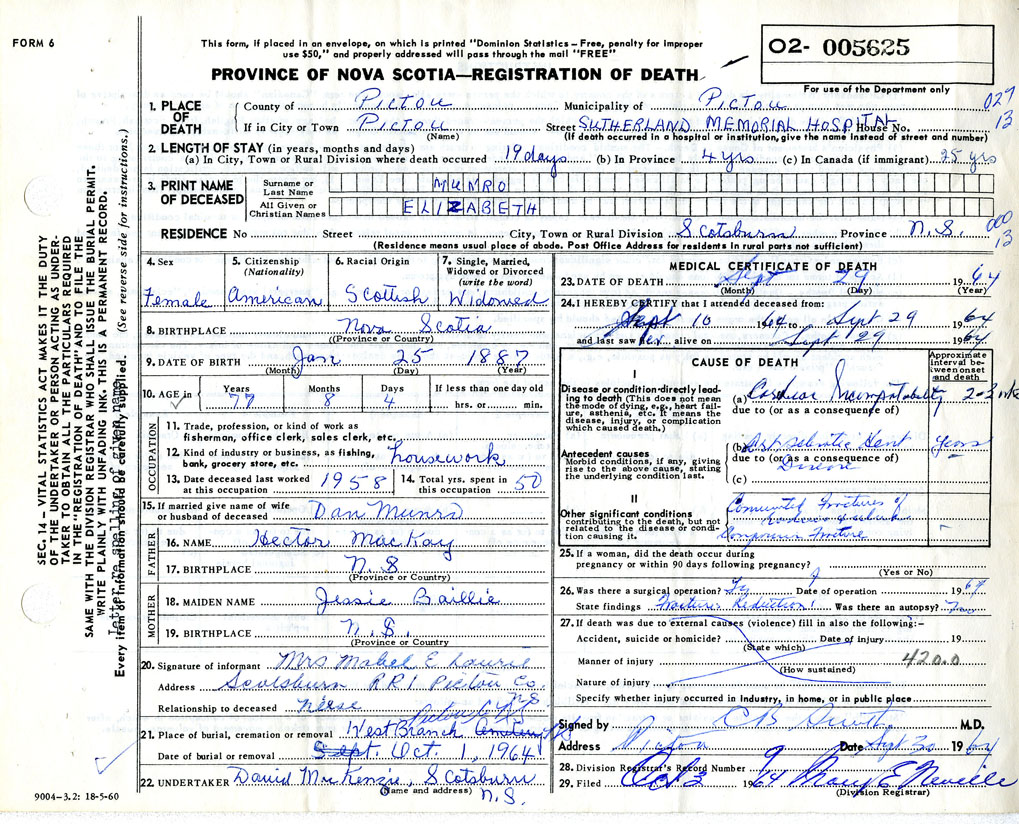 FORM 6
This form, if placed in an envelope, on which is printed "Dominion Statistics – Free, penalty for improper
use $50," and properly addressed will pass through the mail "FREE"
PROVINCE OF NOVA SCOTIA—REGISTRATION OF DEATH
02- 005625
For use of the Department only
SEC. 14 – VITAL STATISTICS ACT MAKES IT THE DUTY
OF THE UNDERTAKER OR PERSON ACTING AS UNDER-
TAKER TO OBTAIN ALL THE PARTICULARS REQUIRED
IN THE "REGISTRATION OF DEATH" AND TO FILE THE
SAME WITH THE DIVISION REGISTRAR WHO SHALL ISSUE THE BURIAL PERMIT.
WRITE PLAINLY WITH UNFADING INK. THIS IS A PERMANENT RECORD.
Every item of information should be carefully supplied. (See reverse side for instructions.)
1. PLACE OF DEATH
County of Pictou Municipality of Pictou 027
If in City or Town Pictou Street SUTHERLAND MEMORIAL HOSPITAL House No. 13
(Name) (If death occurred in a hospital or institution, give the name instead of street and number)
2. LENGTH OF STAY (in years, months and days)
(a) In City, Town or Rural Division where death occurred 19 days (b) In Province 4 yrs (c) In Canada (if immigrant) 25 yrs
3. PRINT NAME OF DECEASED
Surname or Last Name MUNRO
All Given or Christian Names ELIZABETH
RESIDENCE No Street City, Town or Rural Division Scotsburn Province N.S. 000 13
(Residence means usual place of abode. Post Office Address for residents in rural parts not sufficient)
4. Sex Female
5. Citizenship (Nationality) American
6. Racial Origin Scottish
7. Single, Married, Widowed or Divorced (write the word) Widowed
8. BIRTHPLACE Nova Scotia
(Province or Country)
9. DATE OF BIRTH Jan 25 1887
(Month) (Day) (Year)
10. AGE in Years 77 Months 8 Days 4 If less than one day old hrs. or min.
OCCUPATION
11. Trade, profession, or kind of work as
fisherman, office clerk, sales clerk, etc.
12. Kind of industry or business, as fishing,
bank, grocery store, etc. housework
13. Date deceased last worked at this occupation 1958 14. Total yrs. spent in this occupation 50
15. If married give name of wife
or husband of deceased Dan Munro
FATHER
16. NAME Hector MacKay
17. BIRTHPLACE N.S
(Province or Country)
MOTHER
18. MAIDEN NAME Jessie Baillie
19. BIRTHPLACE N.S.
(Province or Country
20. Signature of informant Mrs Mabel E Lowrie
Address Scotsburn RR1 Pictou Co. N.S
Relationship to deceased Niese
21. Place of burial, cremation or removal West Branch
Date of burial or removal Sept. Oct. 1, 1964
22. UNDERTAKER David MacKenzie, Scotsburn N.S.
(Name and address)
9004–3.2: 18-5-60
MEDICAL CERTIFICATE OF DEATH
23. DATE OF DEATH Sept 29 1964
(Month) (Day) (Year)
24. I HEREBY CERTIFY that I attended deceased from:
Sept 10 1964 to Sept 29 1964
and last saw her alive on Sept 29 1964
CAUSE OF DEATH
Approximate interval between onset and death
I
Disease or condition directly leading to death (This does not mean
the mode of dying, e.g., heart failure, asthenia, etc. It means the
disease, injury, or complication which caused death.)
(a) Cardiac
due to (or as a consequence of)
Antecedent causes
Morbid conditions, if any, giving rise to the above cause, stating
the underlying condition last.
(b) Heart Disease Years
due to (or as a consequence of)
(c)
II
Other significant conditions
contributing to the death, but not related to the disease or condition causing it.
Fractures of
Fracture
25. If a woman, did the death occur during
pregnancy or within 90 days following pregnancy?
(Yes or No)
26. Was there a surgical operation? Date of operation 1964
State findings Fracture Reduction Was there an autopsy?
27. If death was due to external causes (violence) fill in also the following:–
Accident, suicide or homicide? Date of injury 19
(State which)
Manner of injury 420.0
(How sustained)
Nature of injury
Specify whether injury occurred in Industry, in home, or in public place
Signed by C B Smith M.D.
Address Pictou Date Sept 30 1964
28. Division Registrar's Record Number 9
29. Filed Oct 3 1964 Mary E Neville
(Division Registrar)